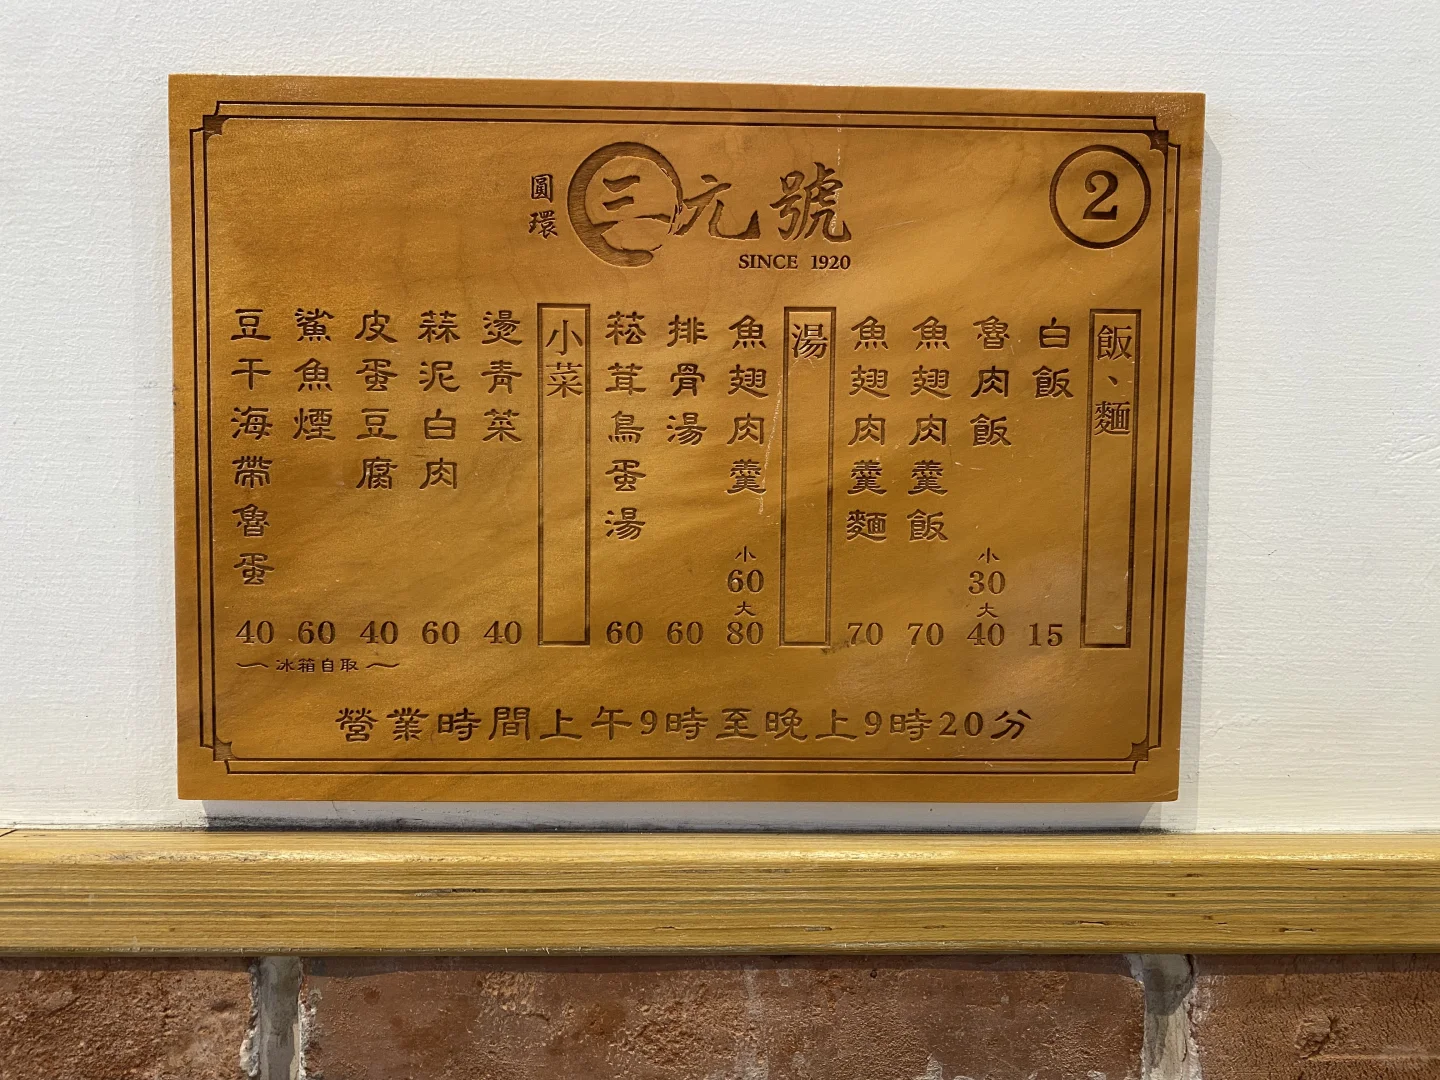 圓環
三元號
SINCE 1920
2
飯、麵
白飯 15
魯肉飯 小30 大40
魚翅肉羹飯 70
魚翅肉羹麵 70
湯
魚翅肉羹 小60 大80
排骨湯 60
菘茸鳥蛋湯 60
小菜
燙青菜 40
蒜泥白肉 60
皮蛋豆腐 40
鯊魚煙 60
豆干海帶魯蛋 40
～冰箱自取～
營業時間上午9時至晚上9時20分